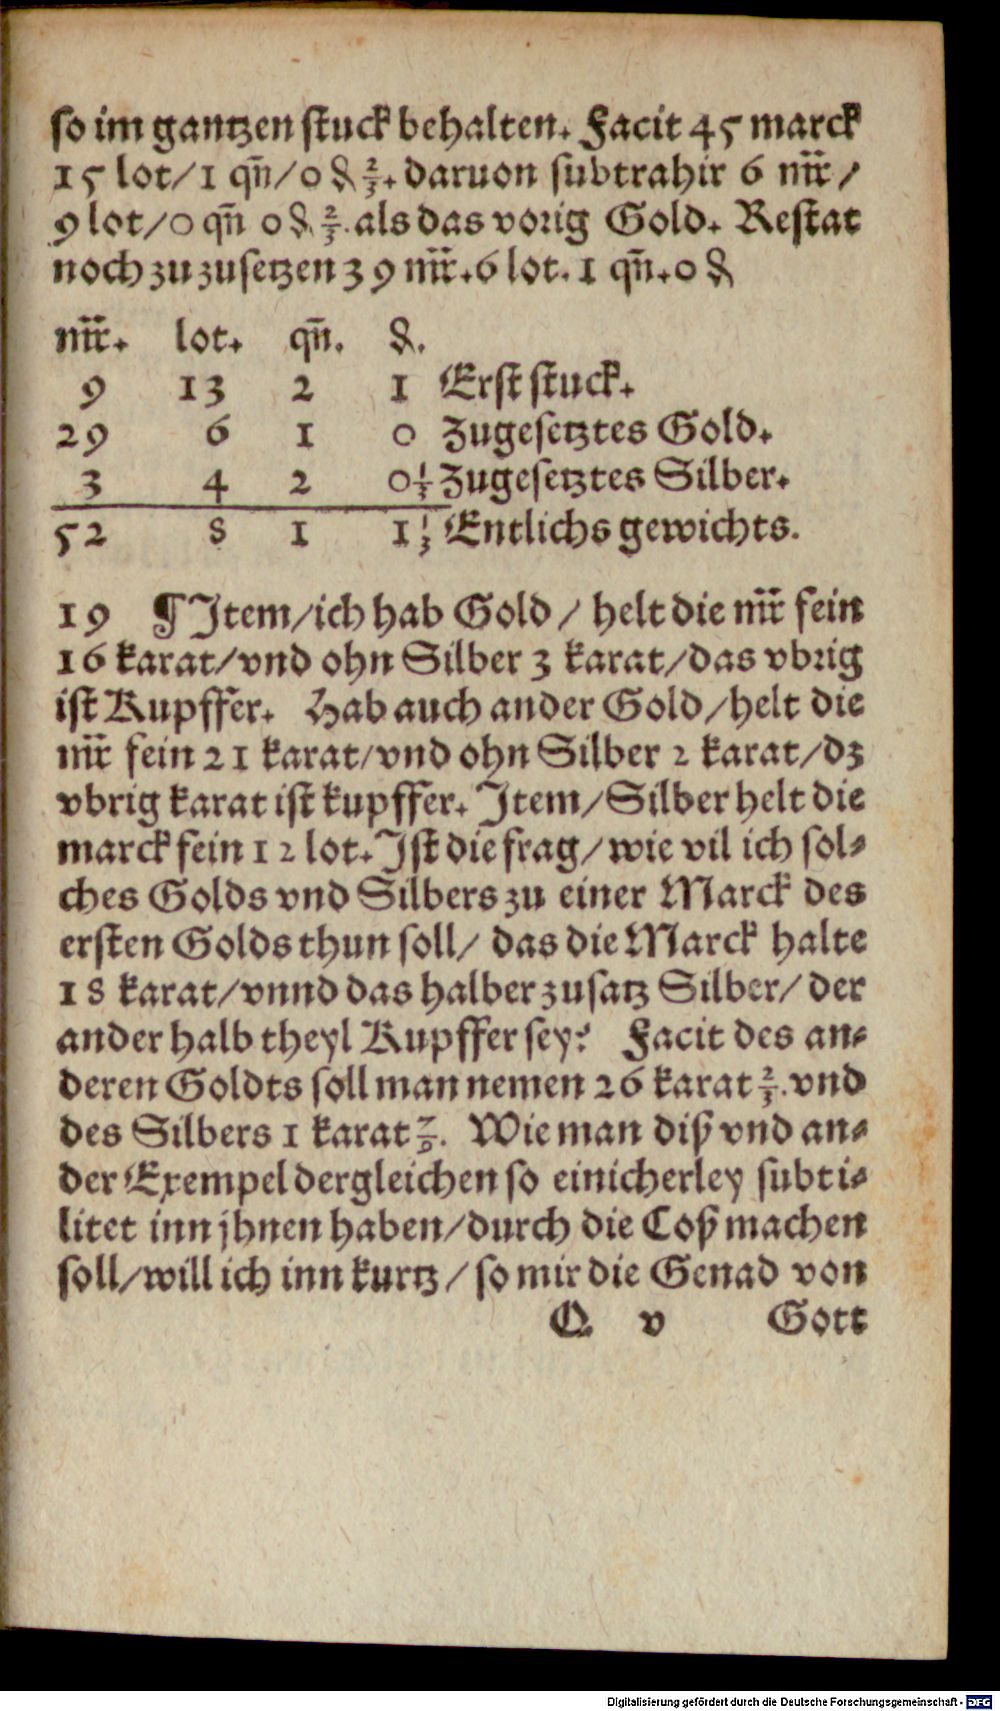 so im gantzen stuck behalten. Facit 45 marck
15 lot/1 qn̄/0 ₰ 2/3. daruon subtrahir 6 mr̈/
9 lot/0 qn̄ 0 ₰ 2/3. als das vorig Gold. Restat
noch zu zusetzen 39 mr̈. 6 lot. 1 qn̄. 0 ₰
mr̈. lot. qn̄. ₰.
9 13 2 1 Erst stuck.
29 6 1 0 Zugesetztes Gold.
3 4 2 0 1/3 Zugesetztes Silber.
52 8 1 1 1/3 Entlichs gewichts.
19 ¶ Item/ich hab Gold/ helt die mr̈ fein
16 karat/vnd ohn Silber 3 karat/das vbrig
ist Kupffer. Hab auch ander Gold/helt die
mr̈ fein 21 karat/vnd ohn Silber 2 karat/dz
vbrig karat ist kupffer. Item/Silber helt die
marck fein 12 lot. Ist die frag/wie vil ich sol⸗
ches Golds vnd Silbers zu einer Marck des
ersten Golds thun soll/ das die Marck halte
18 karat/vnnd das halber zusatz Silber/ der
ander halb theyl Kupffer sey? Facit des an⸗
deren Goldts soll man nemen 26 karat 2/3. vnd
des Silbers 1 karat 7/9. Wie man diß vnd an⸗
der Exempel dergleichen so einicherley subti⸗
litet inn jhnen haben/durch die Coß machen
soll/will ich inn kurtz/ so mir die Genad von
Q v Gott
Digitalisierung gefördert durch die Deutsche Forschungsgemeinschaft - DFG